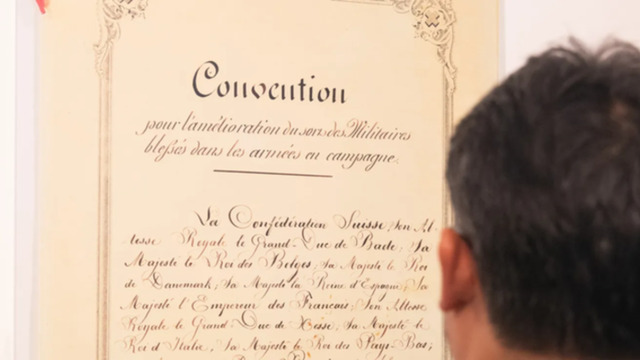 Convention
pour l'amélioration du sort des Militaires
blessés dans les armées en campagne.
La Confédération Suisse; Son Al-
tesse Royale le Grand-Duc de Bade; Sa
Majesté le Roi des Belges; Sa Majesté le Roi
de Danemark; Sa Majesté la Reine d'Espagne; Sa
Majesté l'Empereur des Français; Son Altesse
Royale le Grand-Duc de Hesse; Sa Majesté le
Roi d'Italie; Sa Majesté le Roi des Pays-Bas;